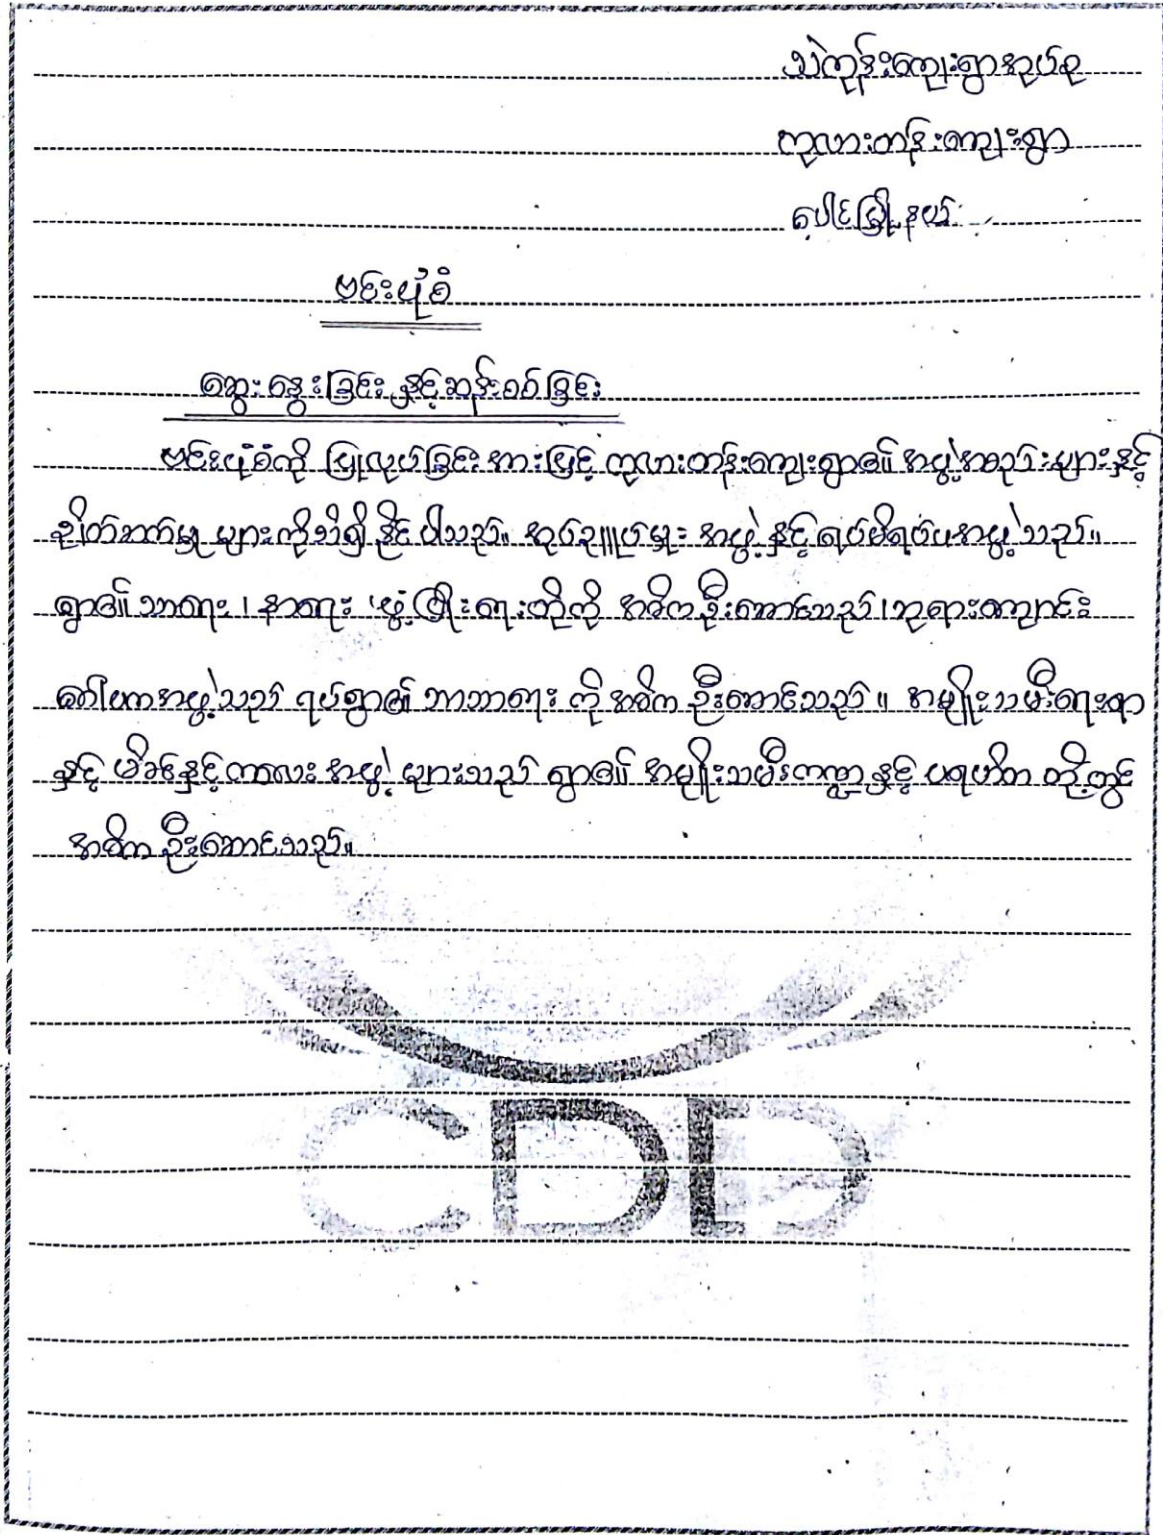 သဲကုန်းကျေးရွာအုပ်စု
ကုလားတန်းကျေးရွာ
ပေါင်မြို့နယ်
ဗင်းပုံစံ
ဆွေးနွေးခြင်းနှင့်ဆန်းစစ်ခြင်း
ဗင်းပုံစံကို ပြုလုပ်ခြင်းအားဖြင့် ကုလားတန်းကျေးရွာ၏ အဖွဲ့အစည်းများနှင့်
ချိတ်ဆက်မှု များကိုသိရှိနိုင်ပါသည်။ အုပ်ချုပ်မှု အဖွဲ့နှင့် ရပ်မိရပ်ဖအဖွဲ့သည်။
ရွာ၏ သာရေး၊ နာရေး၊ ဖွံ့ဖြိုးရေးတို့ကို အဓိကဦးဆောင်သည်၊ ဘုရားကျောင်း
ဂေါပကအဖွဲ့သည် ရပ်ရွာ၏ ဘာသာရေး ကို အဓိက ဦးဆောင်သည်။ အမျိုးသမီးရေးရာ
နှင့် မိခင်နှင့်ကလေး အဖွဲ့ များသည် ရွာ၏ အမျိုးသမီးကဏ္ဍနှင့် ပရဟိတ တို့တွင်
အဓိကဦးဆောင်သည်။
CDD